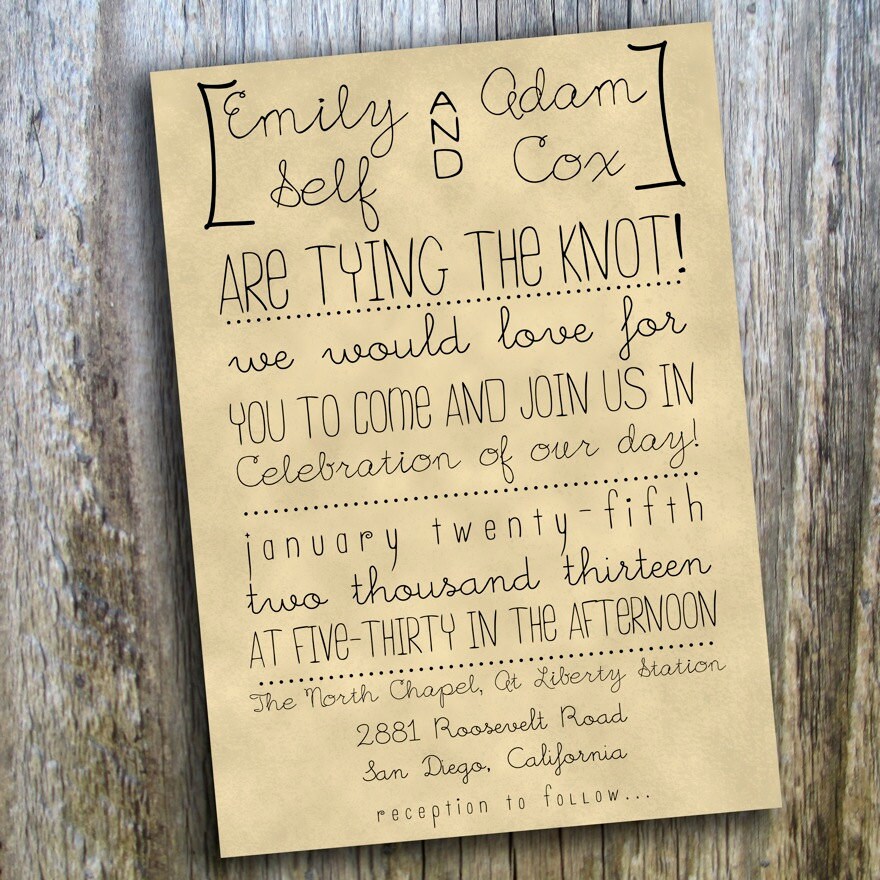 Emily AND Adam
Self Cox
ARE TYING THE KNOT!
we would love for
YOU TO COME AND JOIN US IN
Celebration of our day!
january twenty-fifth
two thousand thirteen
AT FIVE-THIRTY IN THE AFTERNOON
The North Chapel, At Liberty Station
2881 Roosevelt Road
San Diego, California
reception to follow...